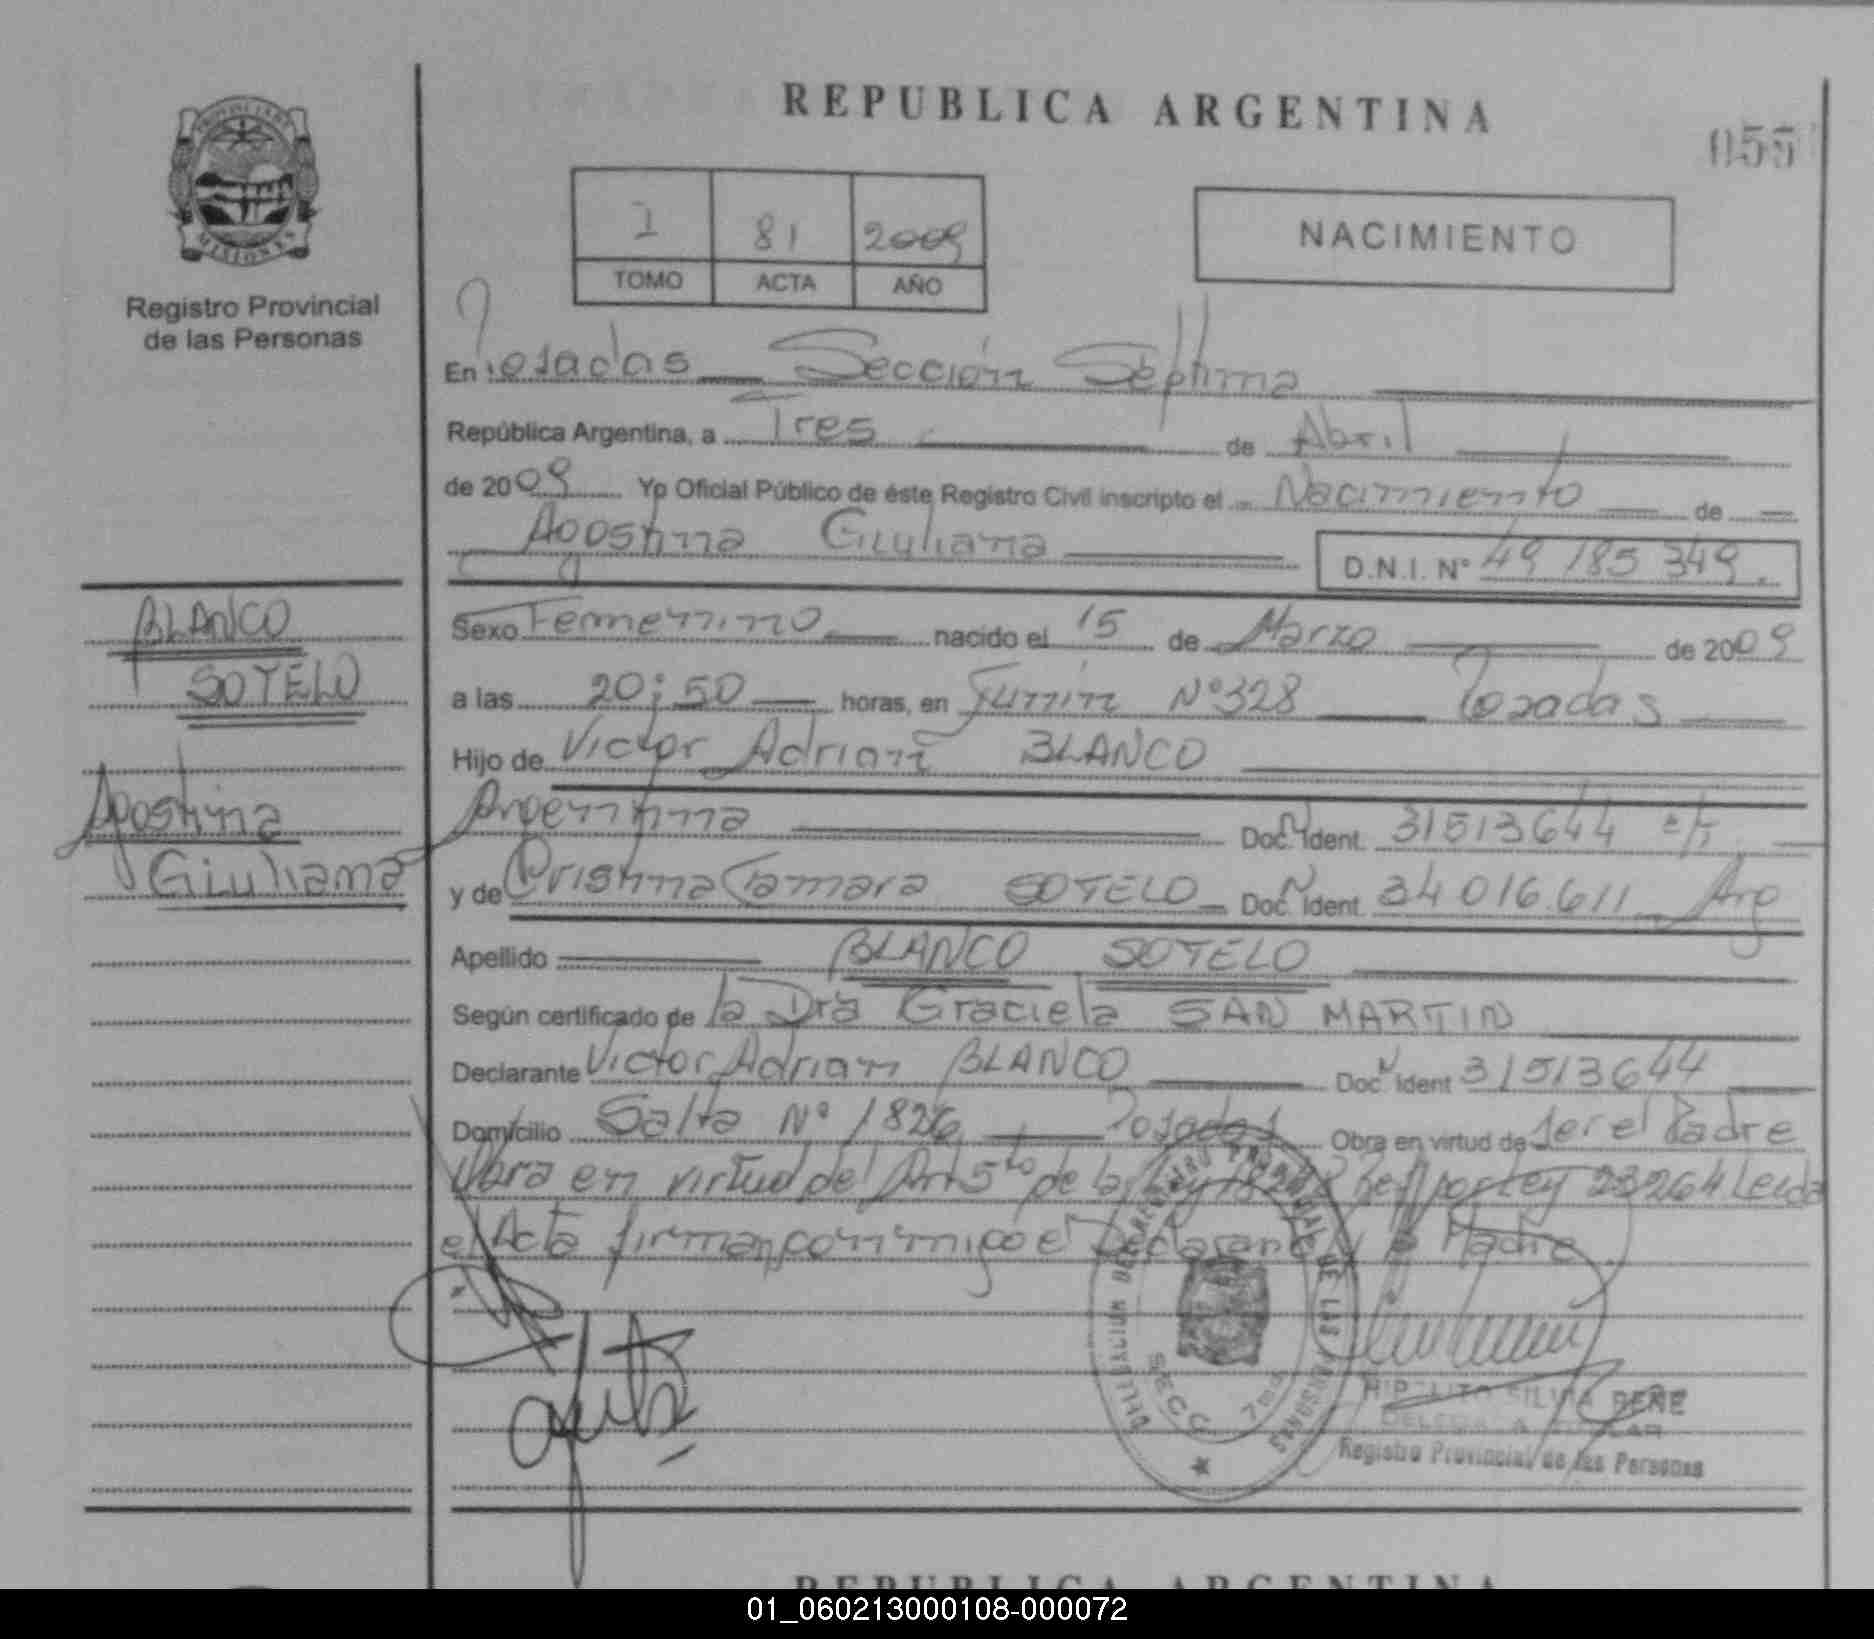 REPUBLICA ARGENTINA
055
PROVINCIA DE
MISIONES
Registro Provincial
de las Personas
I 81 2009
TOMO ACTA AÑO
NACIMIENTO
En Posadas Sección Séptima
República Argentina, a Tres de Abril
de 2009 Yo Oficial Público de éste Registro Civil inscripto el Nacimiento de
Agostina Giuliana D.N.I. N° 49 185 349.
BLANCO
SOTELO
Agostina
Giuliana
Sexo Femenino nacido el 15 de Marzo de 2009
a las 20:50 horas, en Junín N° 328 Posadas
Hijo de Victor Adrian BLANCO
Argentina Doc. Ident. 31513644
y de Cristina Tamara SOTELO Doc. Ident. 34 016.611 Arg
Apellido BLANCO SOTELO
Según certificado de la Dra Graciela SAN MARTIN
Declarante Victor Adrian BLANCO Doc. Ident 31513644
Domicilio Salta N° 1826 Posadas Obra en virtud de ser el Padre
Obra en virtud del Art 5to de la Ley por Ley 23264 Leida
el Acta firman conmigo el Declarante y la Madre.
DELEGACION DE REGISTRO PROVINCIAL DE LAS PERSONAS
SECC. 7ma
HIPOLITO SILVIA RENE
DELEGADA TITULAR
Registro Provincial de las Personas
REPUBLICA ARGENTINA
01_060213000108-000072